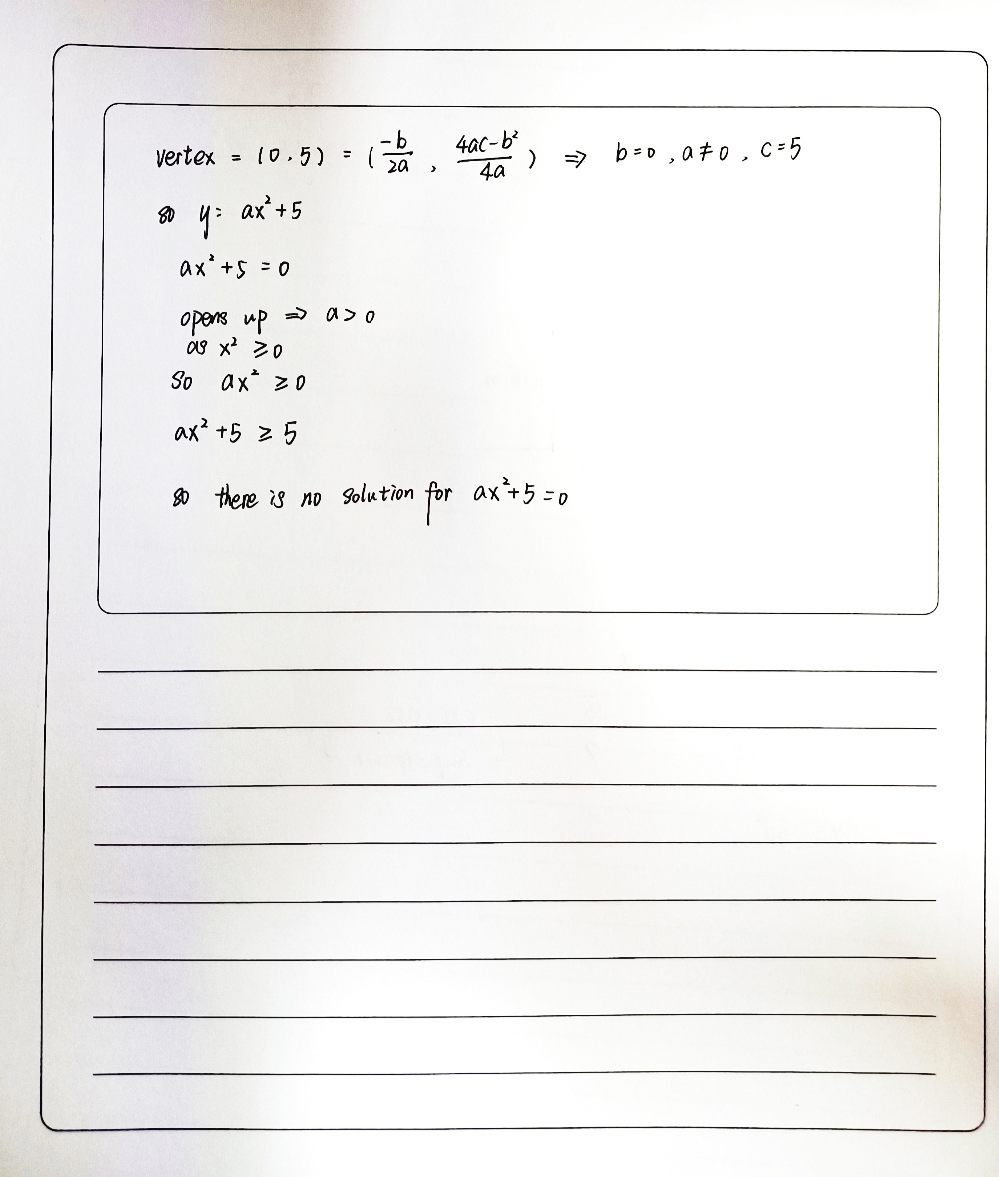 vertex = (0,5) = (\frac{-b}{2a}, \frac{4ac-b²}{4a}) ⇒ b=0, a≠0, c=5
so y= ax²+5
ax²+5=0
opens up ⇒ a>0
as x² ≥0
So ax² ≥0
ax²+5 ≥ 5
so there is no solution for ax²+5=0